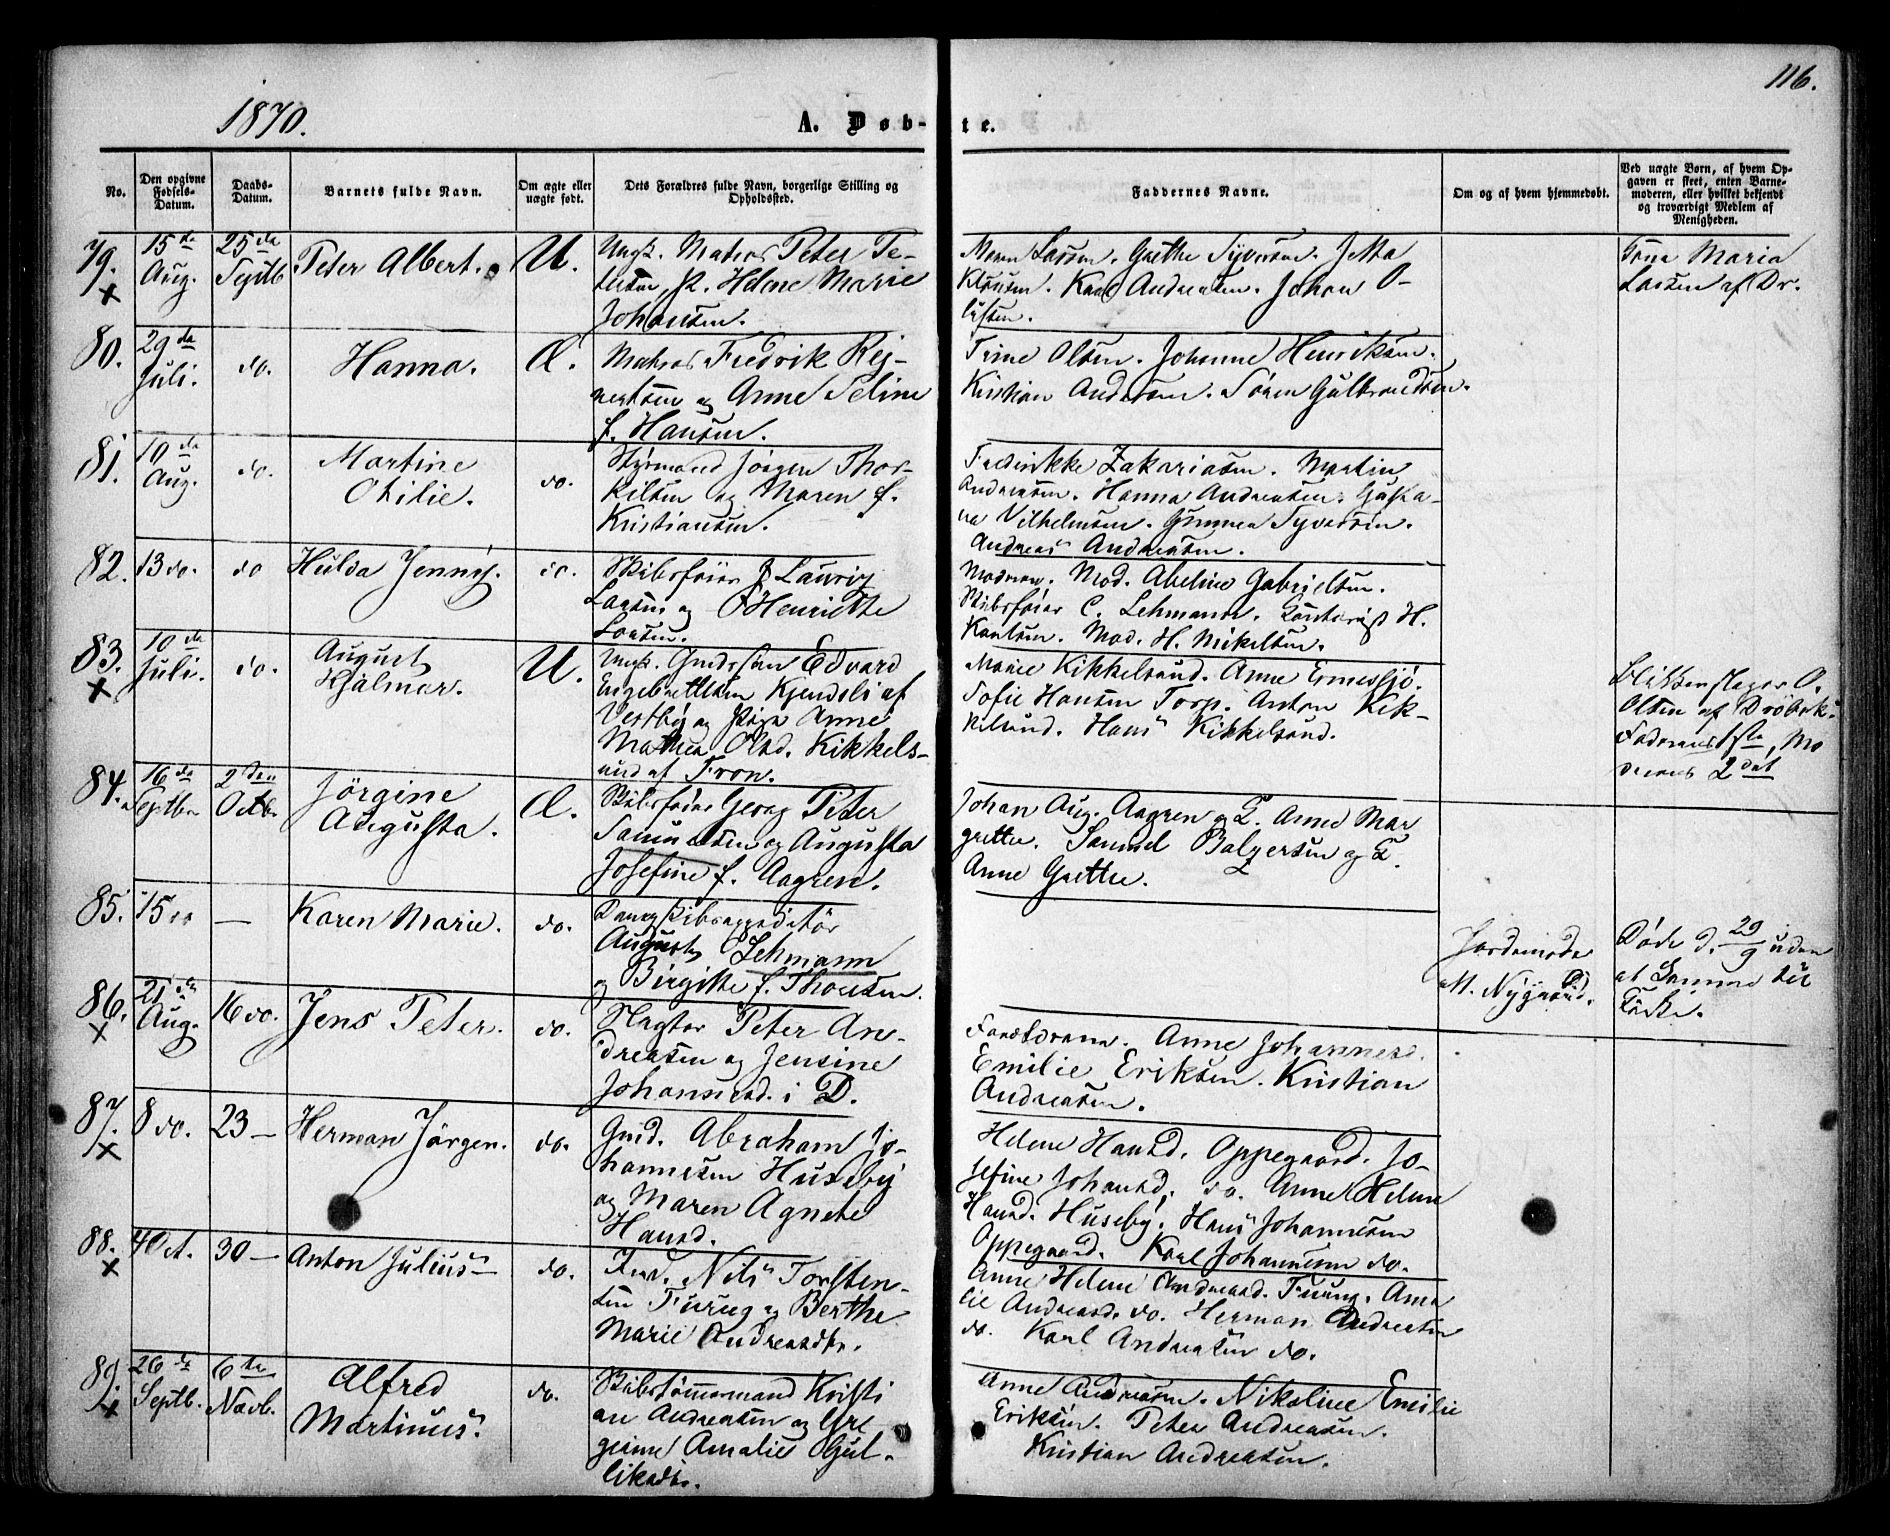 116.
1870.
A. Døb-te.
No.
Den opgivne Fødsels-Datum.
Daabs-Datum.
Barnets fulde Navn.
Om ægte eller uægte født.
Dets Forældres fulde Navn, borgerlige Stilling og Opholdssted.
Faddernes Navne.
Om og af hvem hjemmedøbt.
Ved uægte Børn, af hvem Opgaven er skeet, enten Barnemoderen, eller hvilket bekjendt og troværdigt Medlem af Menigheden.
79. 15de Aug. 25de Septb. Peter Albert. U.
Ungk. Matros Peter Pe-
tersen, P. Helene Marie
Johansen.
Maren Larsen. Grethe Syversen. Jetta
Klausen. Karl Andreasen. Johan O-
lsen.
Maria
Larsen af Dr.
80. 29de Juli. do. Hanna. Æ.
Matros Fredrik Rej-
nertsen og Anne Peline
f. Hansen.
Trine Olsen. Johanne Henriksen.
Kristian Andersen. Søren Gulbrandsen.
81. 10de Aug. do. Martine Otilie. do.
Styrmand Jørgen Thor-
kilsen og Maren f.
Kristiansen.
Fredrikke Zakariasen. Martin
Andreasen. Hanna Andreasen. Gusta-
va Vilhelmsen. Gunnea Syversen.
Andreas Andreasen.
82. 13 do. do Hulda Jenny. do.
Skibsfører J Lauriz
Larsen og Henriette
Larsen.
Modren. Mad. Abeline Gabrielsen.
Skibsfører C. Lehmann. H.
Karlsen. Mad. H. Mikelsen.
83. 10de Juli. do. August Hjalmar. U.
Ungk. Edvard
Engebrettsen Kjendsli af
Vestby og Pige Anne
Mathea Olsd. Kikkels-
und af Fron.
Marie Kikkelsund. Anne Ermesjø.
Sofie Hansen Torp. Anton Kik-
kelsund. Hans Kikkelsund.
Blikkenslager O.
Olsen af Drøbak.
Faderens 1ste, Mo
derens 2det
84. 16de Septbr 2den Octbr. Jørgine Augusta. Æ.
Skibsfører Georg Peter
Samuelsen og Augusta
Josefine f. Aagren.
Johan Aug. Aagren og Anne Mar
grethe. Samuel Balzersen og
Anne Grethe.
85. 15 do — Karen Marie. do.
Dampskibsexpeditør
August Lehmann
og Birgitte f. Thorsen.
Jordemoder
M. Nygaard.
Døde d. 29/9 uden
at komme til
Kirke.
86. 21de Aug. 16 do. Jens Peter. do.
Slagter Peter An-
dreasen og Jensine
Johannesd. i D.
Forældrene. Anne Johannesd.
Emilie Eriksen. Kristian
Andreasen.
87. 8 do. 23 — Herman Jørgen. do.
Gmd. Abraham Jo-
hannesen Huseby
og Maren Agnete
Hansd.
Helene Hansd. Oppegaard. Jo-
sefine Johansd. do. Anne Helene
Hansd. Huseby. Hans Johannesen
Oppegaard. Karl Johannesen do.
88. 4 Oct. 30 — Anton Julius — do.
Ind. Nils Torsten-
sen Furug og Berthe
Marie Andreasdtr.
Anne Helene Andreasd. Furug. Ama
lie Andreasd. do. Herman Andreasen
do. Karl Andreasen do.
89. 26de Septb. 6te Novb. Alfred Martinus. do.
Skibstømmermand Kristi
an Andreasen og
Amalie Gul-
liksdtr.
Anne Andreasen. Nikoline Emilie
Eriksen. Peter Andreasen.
Kristian Andreasen.